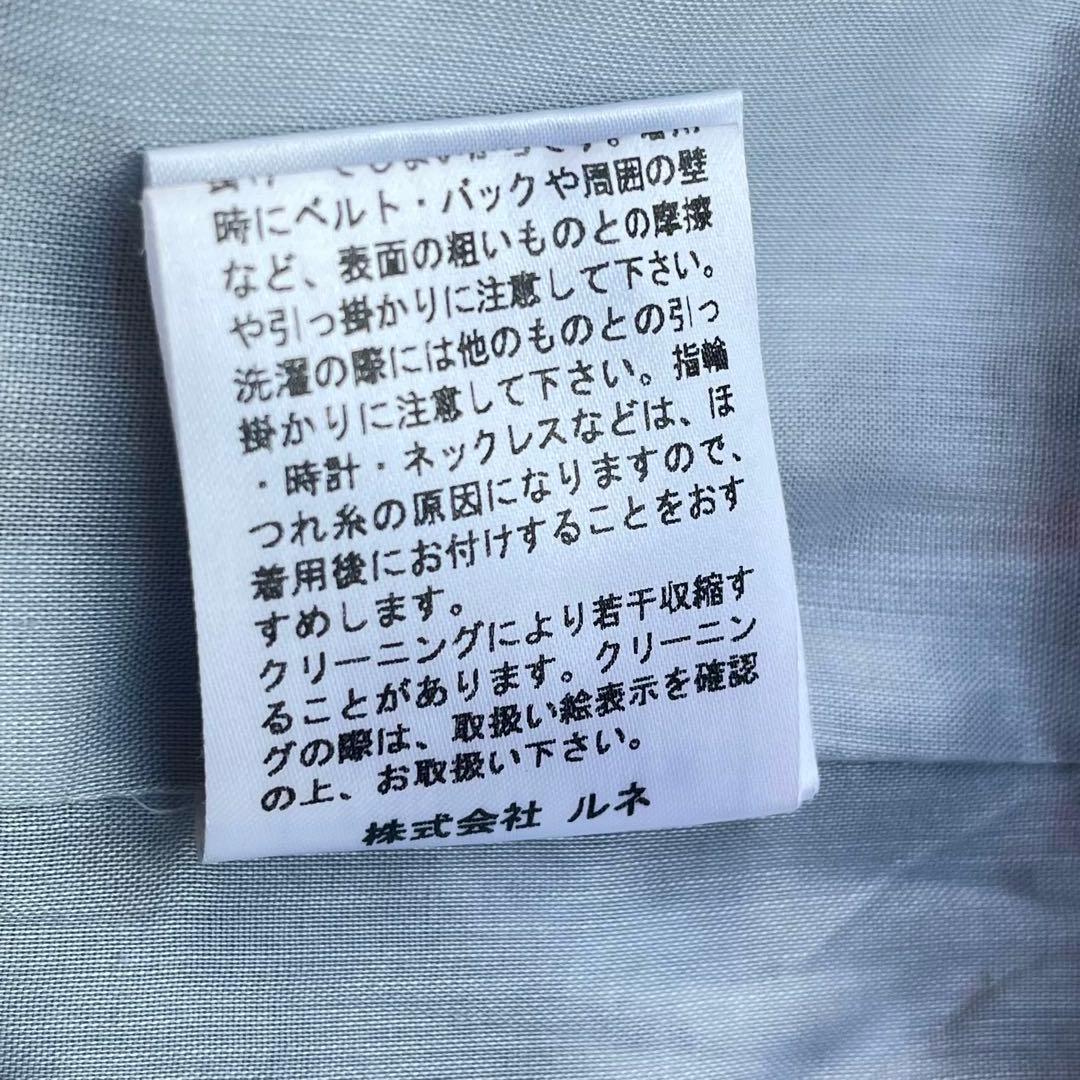 時にベルト・バックや周囲の壁
など、表面の粗いものとの摩擦
や引っ掛かりに注意して下さい。
洗濯の際には他のものとの引っ
掛かりに注意して下さい。指輪
・時計・ネックレスなどは、ほ
つれ糸の原因になりますので、
着用後にお付けすることをおす
すめします。
クリーニングにより若干収縮す
ることがあります。クリーニン
グの際は、取扱い絵表示を確認
の上、お取扱い下さい。
株式会社 ルネ